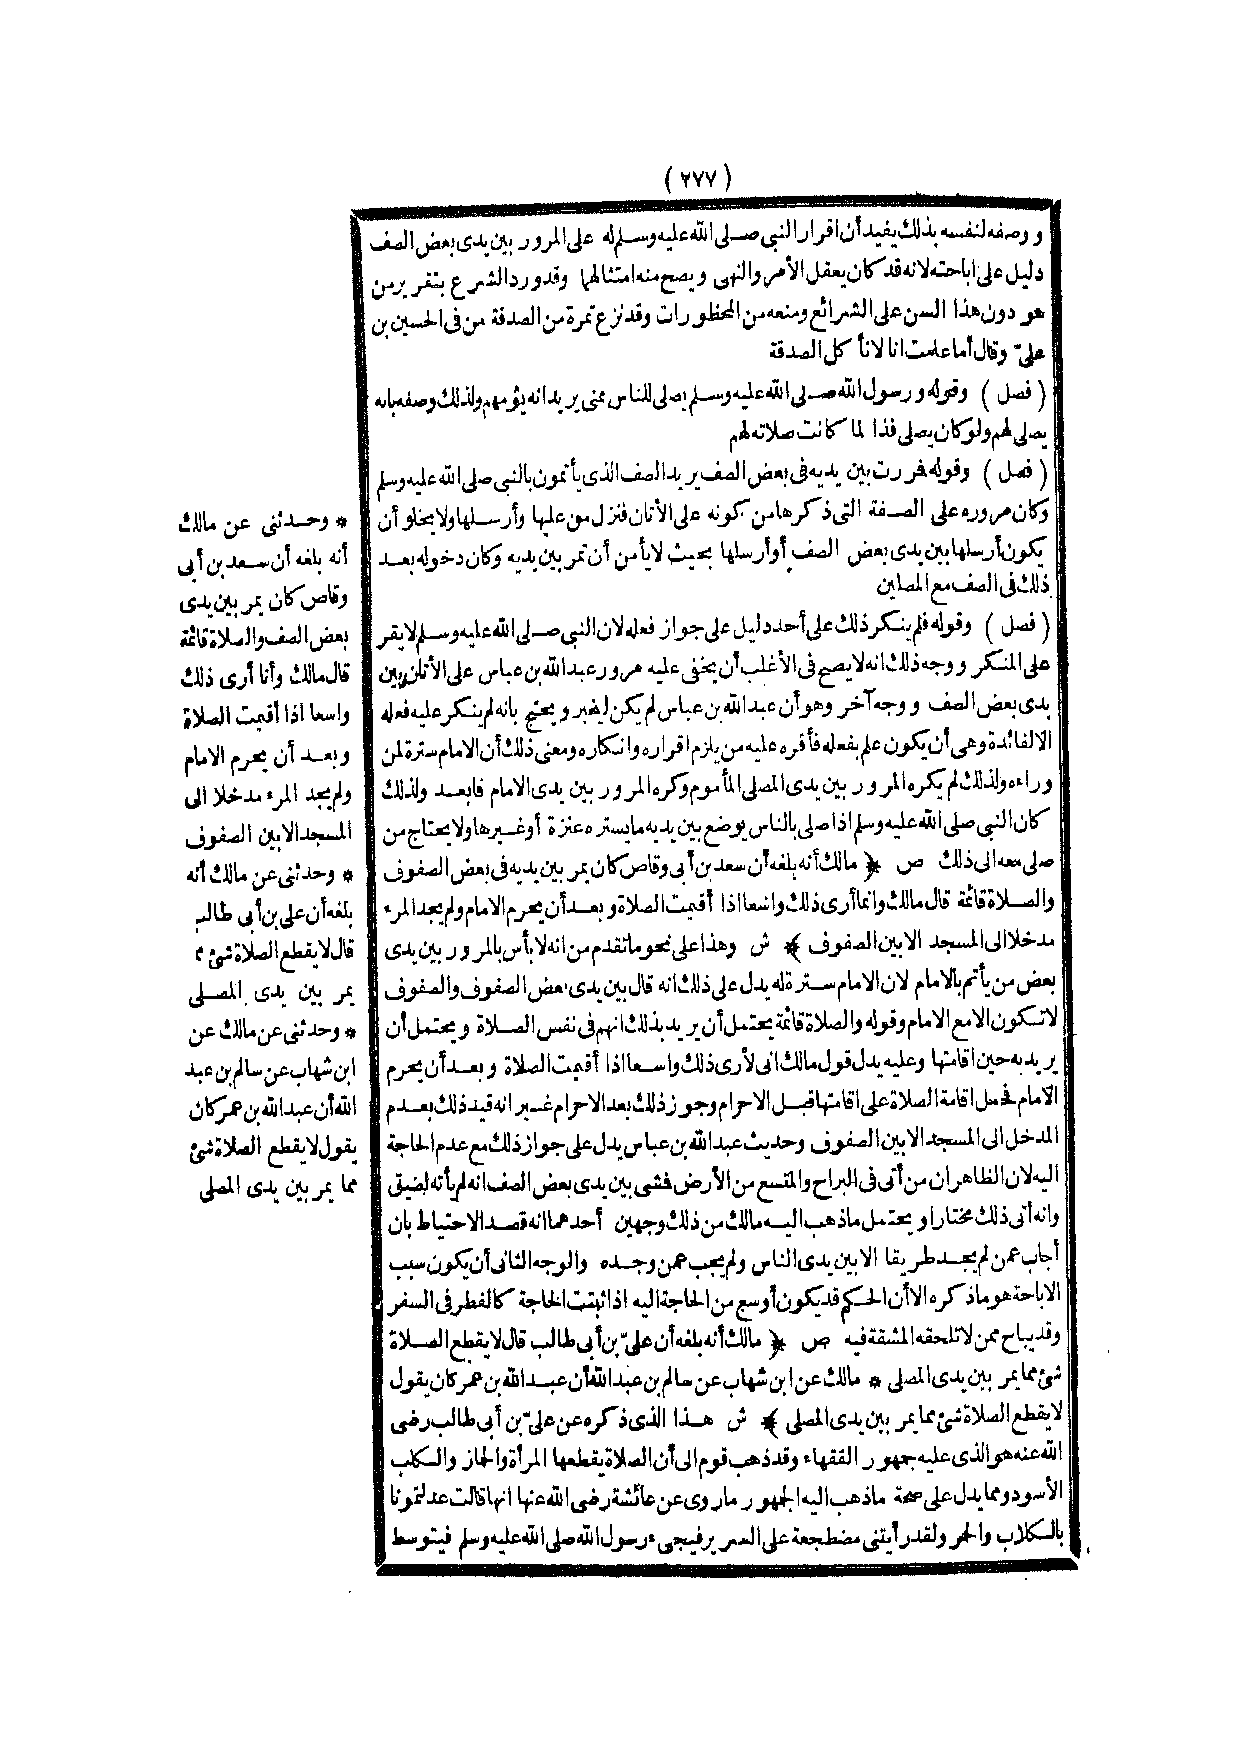 (٢٧٧)
ووصفه لنفسه بذلك يفيد أن اقرار النبي صلى الله عليه وسلم له على المرور بين يدى بعض الصف
دليل على اباحته لانه قد كان يعقل الأمر والنهى ويصح منه امتثالهما وقد ورد الشرع بتقرير من
هو دون هذا السن على الشرائع ومنعه من المحظورات وقد نزع تمرة من الصدقة من فى الحسين بن
علىّ وقال أما علمت انا لا نأكل الصدقة
(فصل) وقوله ورسول الله صلى الله عليه وسلم يصلى للناس بمنى يريد انه يؤمهم ولذلك وصفه بانه
يصلى لهم ولو كان يصلى فذا لما كانت صلاته لهم
(فصل) وقوله فمررت بين يديه فى بعض الصف يريد الصف الذى يأتمون بالنبي صلى الله عليه وسلم
وكان مروره على الصفة التى ذكرها من كونه على الأتان فنزل من عليها وأرسلها ولا يخلو أن
يكون أرسلها بين يدى بعض الصف أو أرسلها بحيث لا يأمن أن تمر بين يديه وكان دخوله بعد
ذلك فى الصف مع المصلين
(فصل) وقوله فلم ينكر ذلك على أحد دليل على جواز فعله لان النبي صلى الله عليه وسلم لا يقر
على المنكر ووجه ذلك انه لا يصح فى الأغلب أن يخفى عليه مرور عبد الله بن عباس على الأتان بين
يدى بعض الصف ووجه آخر وهو أن عبد الله بن عباس لم يكن ليخبر ويحتج بانه لم ينكر عليه فعله
الا لفائدة وهى أن يكون علم بفعله فأقره عليه من يلزم اقراره وانكاره ومعنى ذلك أن الامام سترة لمن
وراءه ولذلك لم يكره المرور بين يدى المصلى المأموم وكره المرور بين يدى الامام فابعد ولذلك
كان النبي صلى الله عليه وسلم اذا صلى بالناس يوضع بين يديه ما يستره عنزة أو غيرها ولا يحتاج من
صلى معه الى ذلك ص ﴿ مالك أنه بلغه أن سعد بن أبى وقاص كان يمر بين يديه فى بعض الصفوف
والصلاة قائمة قال مالك وانما أرى ذلك واسعا اذا أقيمت الصلاة وبعد أن يحرم الامام ولم يجد المرء
مدخلا الى المسجد الا بين الصفوف ﴾ ش وهذا على نحو ما تقدم من انه لا بأس بالمرور بين يدى
بعض من يأتم بالامام لان الامام سترة له يدل على ذلك انه قال بين يدى بعض الصفوف والصفوف
لا تكون الا مع الامام وقوله والصلاة قائمة يحتمل أن يريد بذلك انهم فى نفس الصلاة ويحتمل أن
يريد به حين اقامتها وعليه يدل قول مالك انى لأرى ذلك واسعا اذا أقيمت الصلاة وبعد أن يحرم
الامام فحمل اقامة الصلاة على اقامتها قبل الاحرام وجوز ذلك بعد الاحرام غير انه قيد ذلك بعدم
المدخل الى المسجد الا بين الصفوف وحديث عبد الله بن عباس يدل على جواز ذلك مع عدم الحاجة
اليه لان الظاهر ان من أتى فى البراح والمتسع من الأرض فمشى بين يدى بعض الصف انه لم يأته لضيق
وانه أتى ذلك مختارا ويحتمل ما ذهب اليه مالك من ذلك وجهين أحدهما انه قصد الاحتياط بان
أجاب عمن لم يجد طريقا الا بين يدى الناس ولم يجب عمن وجده والوجه الثانى أن يكون سبب
الاباحة هو ما ذكره الا أن الحكم قد يكون أوسع من الحاجة اليه اذا ثبتت الحاجة كالفطر فى السفر
وقد يباح ممن لا تلحقه المشقة فيه ص ﴿ مالك أنه بلغه أن علىّ بن أبى طالب قال لا يقطع الصلاة
شئ مما يمر بين يدى المصلى * مالك عن ابن شهاب عن سالم بن عبد الله أن عبد الله بن عمر كان يقول
لا يقطع الصلاة شئ مما يمر بين يدى المصلى ﴾ ش هذا الذى ذكره عن علىّ بن أبى طالب رضى
الله عنه هو الذى عليه جمهور الفقهاء وقد ذهب قوم الى أن الصلاة يقطعها المرأة والحمار والكلب
الأسود ومما يدل على صحة ما ذهب اليه الجمهور ما روى عن عائشة رضى الله عنها انها قالت عدلتمونا
بالكلاب والحمر ولقد رأيتنى مضطجعة على السرير فيجىء رسول الله صلى الله عليه وسلم فيتوسط
* وحدثنى عن مالك
أنه بلغه أن سعد بن أبى
وقاص كان يمر بين يدى
بعض الصف والصلاة قائمة
قال مالك وأنا أرى ذلك
واسعا اذا أقيمت الصلاة
وبعد أن يحرم الامام
ولم يجد المرء مدخلا الى
المسجد الا بين الصفوف
* وحدثنى عن مالك أنه
بلغه أن على بن أبى طالب
قال لا يقطع الصلاة شئ مما
يمر بين يدى المصلى
* وحدثنى عن مالك عن
ابن شهاب عن سالم بن عبد
الله أن عبد الله بن عمر كان
يقول لا يقطع الصلاة شئ
مما يمر بين يدى المصلى